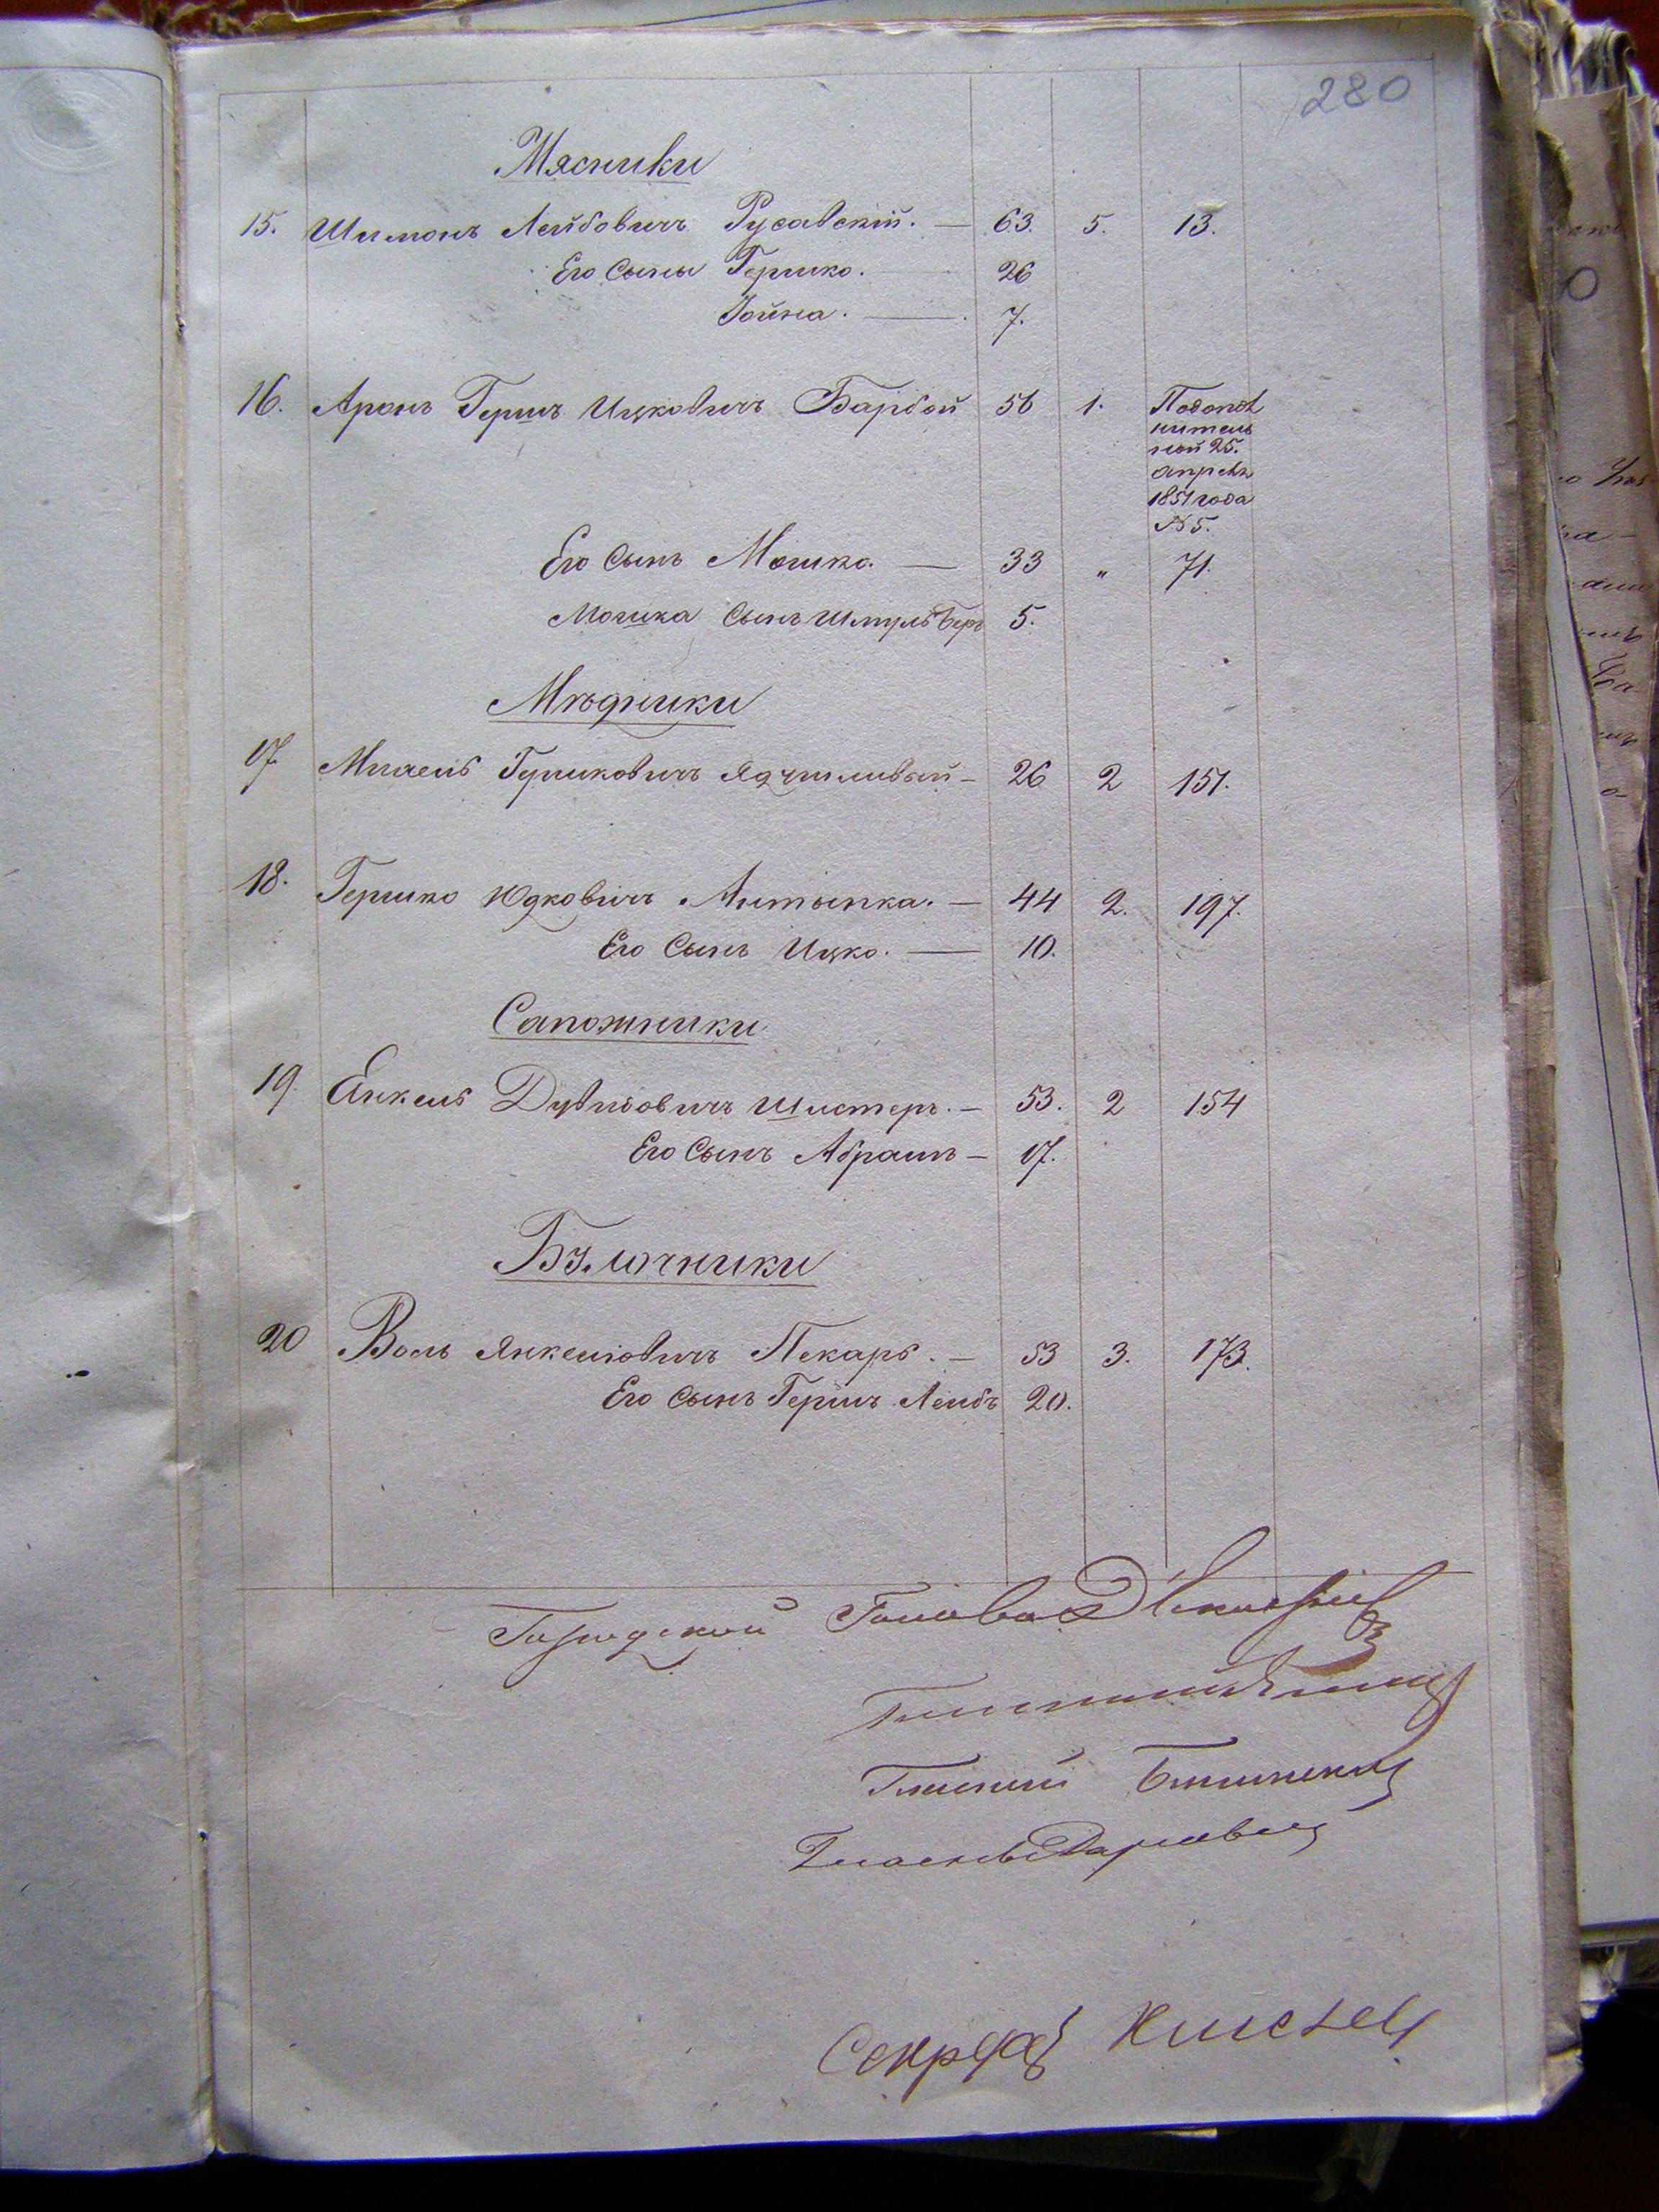 280
Мясники
15. Шимонъ Лейбовичъ Русавскій. — 63. 5. 13.
Его Сыны Гершко. 26
Іойна. — 7.
16. Аронъ Гершъ Ицковичъ Барбой 56 1. Пополнительной 25. апреля 1851 года № 5.
Его Сынъ Мошко. — 33 „ 71.
Мошка Сынъ Шмуль Беръ 5.
Мѣдники
17. Михель Гершковичъ — 26 2 151.
18. Гершко Юдковичъ Антыпка. — 44 2. 197.
Его Сынъ Ицко. — 10.
Сапожники
19. Янкель Дувидовичъ Шистеръ. — 53. 2 154
Его Сынъ Абрамъ — 17.
Булочники
20 Волъ Янкелювичъ Пекарь. — 53 3. 173.
Его Сынъ Гершъ Лейбъ 20.
Городской Голова
Гласный
Гласный
Секретарь